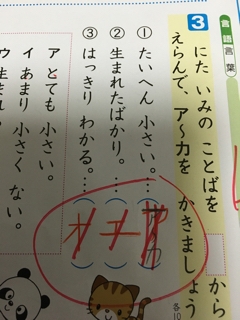 言語 言葉
3 にた いみの ことばを から
えらんで、ア〜カを かきましょう
① たいへん 小さい。…
② 生まれたばかり。…
③ はっきり わかる。…
ア とても 小さい。
イ あまり 小さく ない。
ウ 生まれ
各10